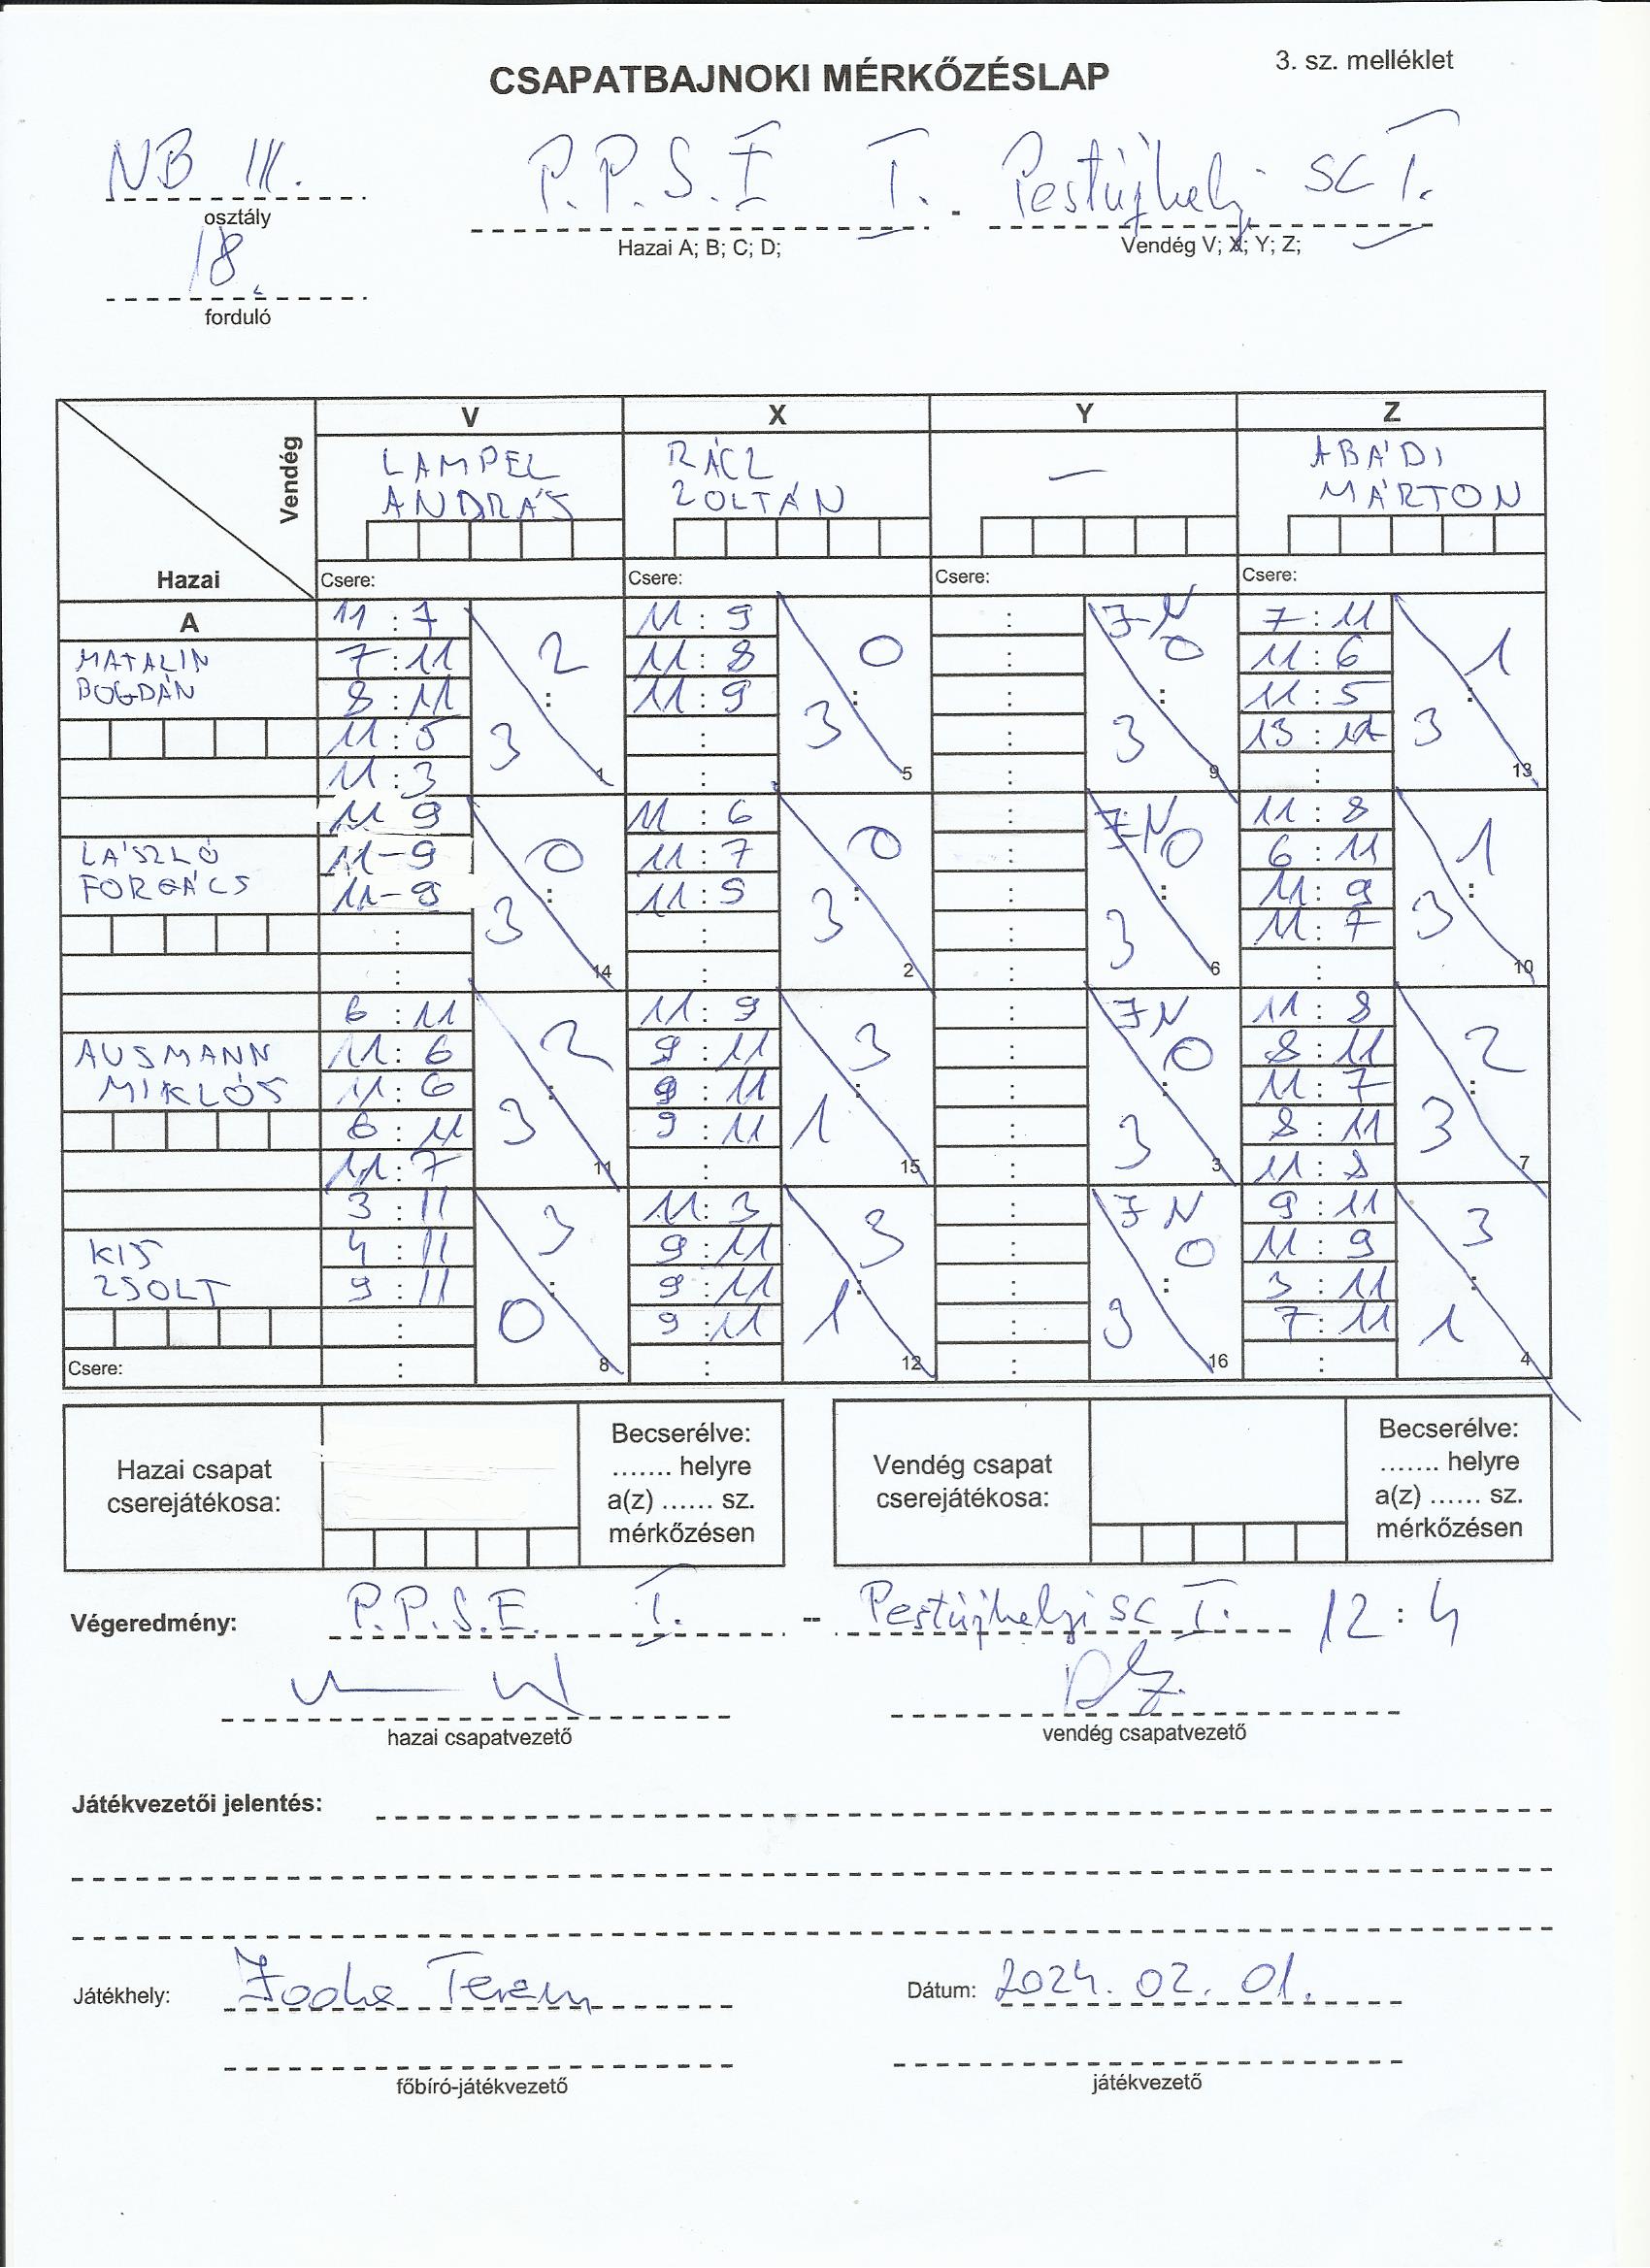 3. sz. melléklet
CSAPATBAJNOKI MÉRKŐZÉSLAP
NB III.
osztály
18.
forduló
P.P.S.E I. - Pestújhelyi SC I.
Hazai A; B; C; D;
Vendég V; X; Y; Z;
Vendég
Hazai
V
X
Y
Z
LAMPEL
ANDRÁS
RÁCZ
ZOLTÁN
—
ABÁDI
MÁRTON
Csere:
Csere:
Csere:
Csere:
A
MATALIN
BOGDÁN
11 : 7
7 : 11
8 : 11
11 : 5
11 : 3
2 : 3
1
11 : 9
11 : 8
11 : 9
:
:
0 : 3
5
:
:
:
:
:
J-N
0 : 3
9
7 : 11
11 : 6
11 : 5
13 :
:
1 : 3
13
LÁSZLÓ
FORGÁCS
11 9
11-9
11-9
:
:
0 : 3
14
11 : 6
11 : 7
11 : 5
:
:
0 : 3
2
:
:
:
:
:
J-N
0 : 3
6
11 : 8
6 : 11
11 : 9
11 : 7
:
1 : 3
10
AUSMANN
MIKLÓS
6 : 11
11 : 6
11 : 6
6 : 11
11 : 7
2 : 3
11
11 : 9
9 : 11
9 : 11
9 : 11
:
3 : 1
15
:
:
:
:
:
J N
0 : 3
3
11 : 8
8 : 11
11 : 7
8 : 11
11 : 8
2 : 3
7
KIS
ZSOLT
Csere:
3 : 11
4 : 11
9 : 11
:
:
3 : 0
8
11 : 3
9 : 11
9 : 11
9 : 11
:
3 : 1
12
:
:
:
:
:
J N
0 : 3
16
9 : 11
11 : 9
3 : 11
7 : 11
:
3 : 1
4
Hazai csapat
cserejátékosa:
Becserélve:
....... helyre
a(z) ...... sz.
mérkőzésen
Vendég csapat
cserejátékosa:
Becserélve:
....... helyre
a(z) ...... sz.
mérkőzésen
Végeredmény: P.P.S.E. I. -- Pestújhelyi SC I. 12 : 4
hazai csapatvezető
vendég csapatvezető
Játékvezetői jelentés:
Játékhely: Terem
Dátum: 2024. 02. 01.
főbíró-játékvezető
játékvezető